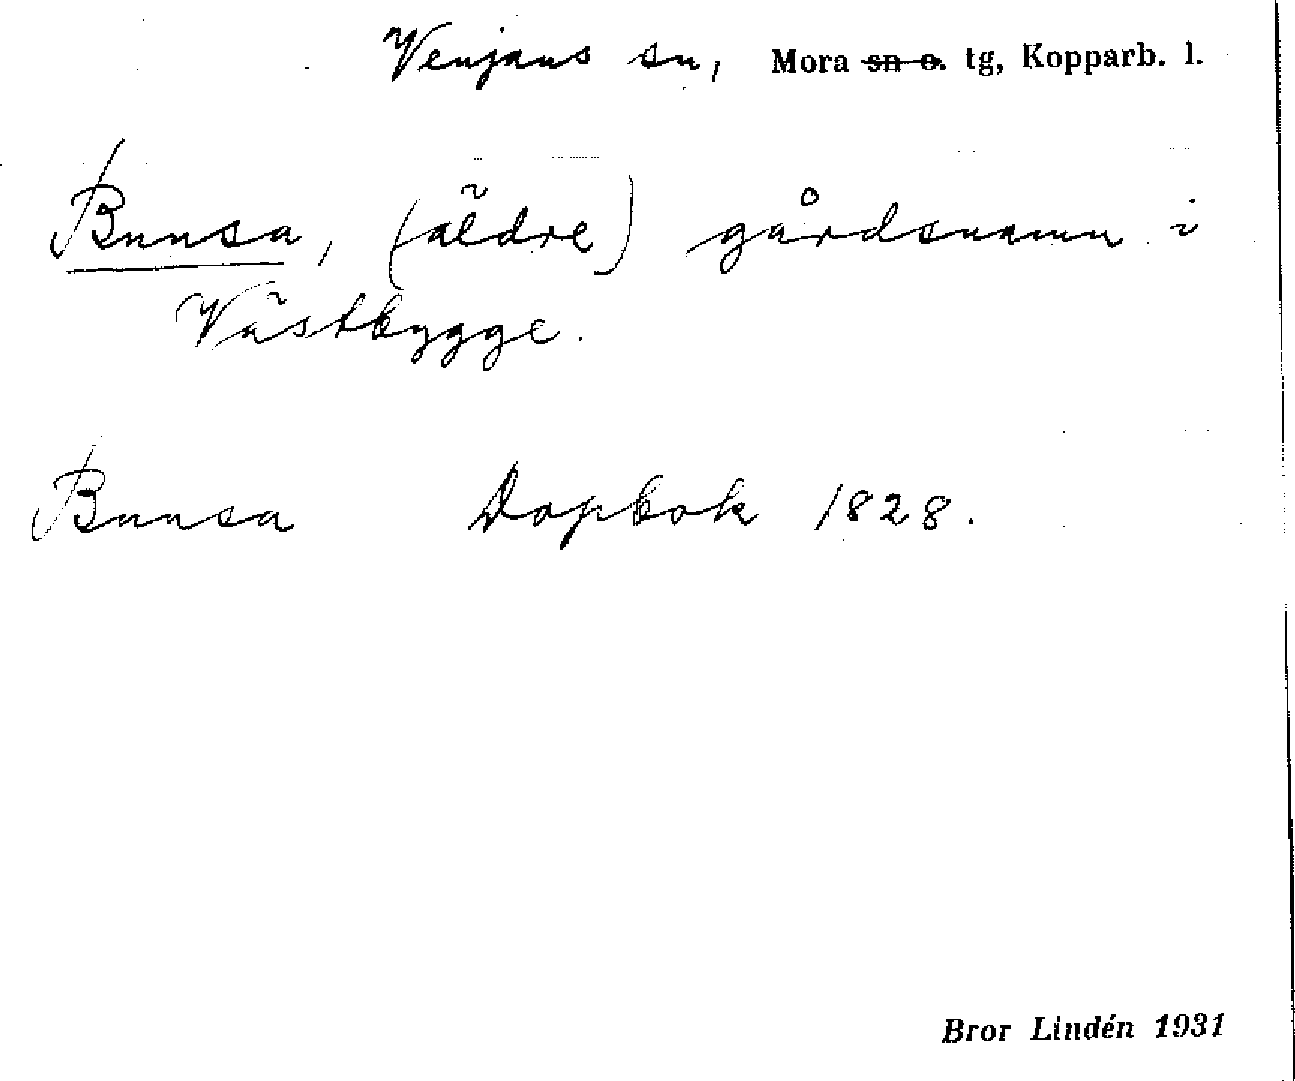 Venjans sn, Mora sn o. tg, Kopparb. l.
Bunsa, (äldre) gårdsnamn i
Västbygge.
Bunsa Dopbok 1828.
Bror Lindén 1931